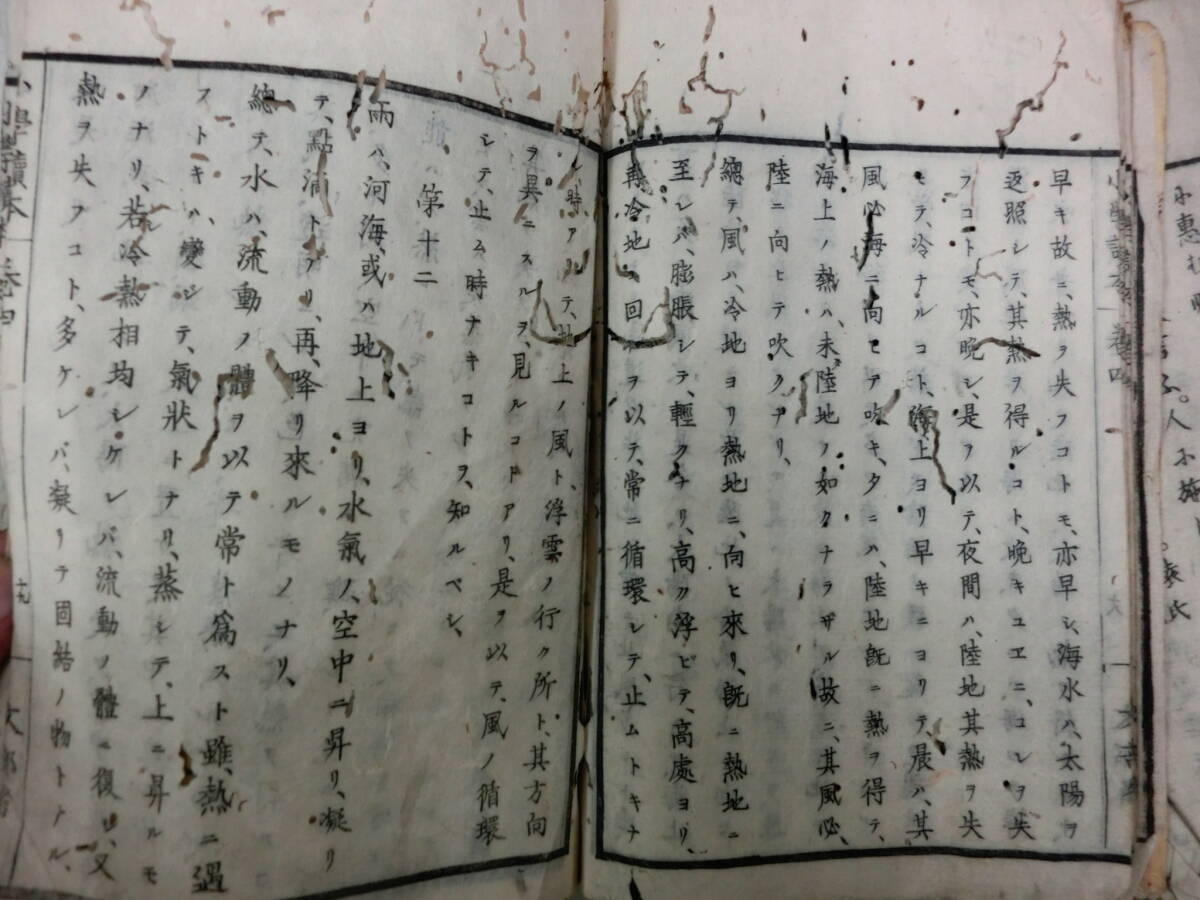 早キ故ニ、熱ヲ失フコトモ、亦早シ、海水ハ、太陽ヲ
返照シテ、其熱ヲ得ルコト、晩キユヱニ、コレヲ失
フコトモ、亦晩シ、是ヲ以テ、夜間ハ、陸地其熱ヲ失
モテ、冷ナルコト、海上ヨリ早キニヨリテ、晨ハ、其
風必海ニ向ヒテ吹キ、タニハ、陸地既ニ熱ヲ得テ、
海上ノ熱ハ、未陸地ノ如クナラザル故ニ、其風必、
陸ニ向ヒテ吹クナリ、
總テ、風ハ、冷地ヨリ熱地ニ、向ヒ來リ、既ニ熱地ニ
至レバ、膨脹シテ、輕クナリ、高ク浮ビテ、高處ヨリ、
再冷地ニ回ルヲ以テ、常ニ循環シテ、止ムトキナ
シ、時アリテ、地上ノ風ト、浮雲ノ行ク所ト、其方向
ヲ異ニスルヲ、見ルコトアリ、是ヲ以テ、風ノ循環
シテ、止ム時ナキコトヲ、知ルベシ、
第十二
雨ハ、河海、或ハ地上ヨリ、水氣ノ、空中ニ昇リ、凝リ
テ、點滴トナリ、再、降リ來ルモノナリ、
總テ、水ハ、流動ノ體ヲ以テ常ト爲スト雖、熱ニ遇
フトキハ、變ジテ、氣狀トナリ、蒸シテ、上ニ昇ルモ
ノナリ、若冷熱相均シケレバ、流動ノ體ニ復リ、又
熱ヲ失フコト、多ケレバ、凝リテ固結ノ物トナル、
小學讀本 卷四
十九